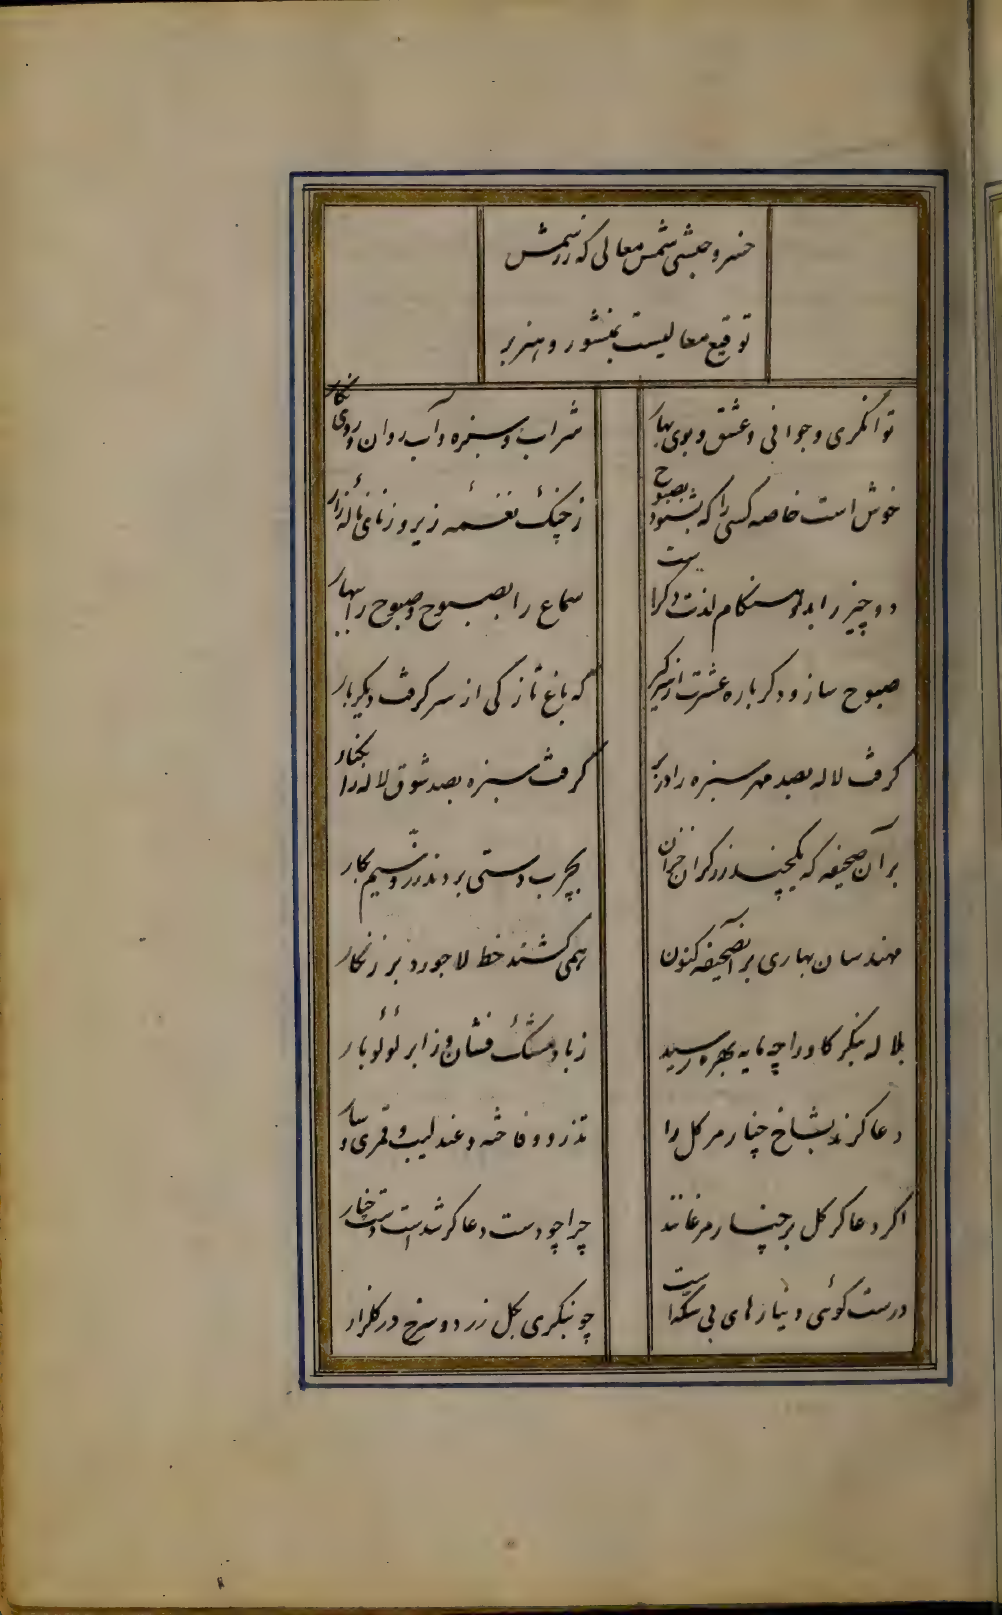 خسرو حبشی شمس معالی که ز رسمش
توقیع معالیست بمنشور و هنر بر
توانگری و جوانی و عشق و بوی بهار
شراب و سبزه و آب روان و روی نگار
خوش است خاصه کسی را که بشنود بصبوح
ز چنگ نغمه زیر و ز نای ناله زار
دو چیز را بدو هنگام لذت دگراست
سماع را بصبوح و صبوح را ببهار
صبوح ساز و دگرباره عشرت از سر گیر
که باغ تازگی از سر گرفت دیگربار
گرفت لاله بصد مهر سبزه را در بر
گرفت سبزه بصد شوق لاله را بکنار
بر آن صحیفه که یکچند زرگران خزان
بچرب دستی بردند زر و سیم بکار
مهندسان بهاری بر آنصحیفه کنون
همی کشند خط لاجورد بر زنگار
بلاله بنگر کاو را چه مایه بهره رسید
ز باد مشک فشان و ز ابر لؤلؤ بار
دعا کرند بشاخ چنار مر گل را
تذرو و فاخته و عندلیب و قمری و سار
اگر دعا گر گل بر چنار مرغانند
چرا چو دست دعا گر شد است دست چنار
درست گوئی دینارهای بی سکه است
چو بنگری بگل زرد و سرخ در گلزار